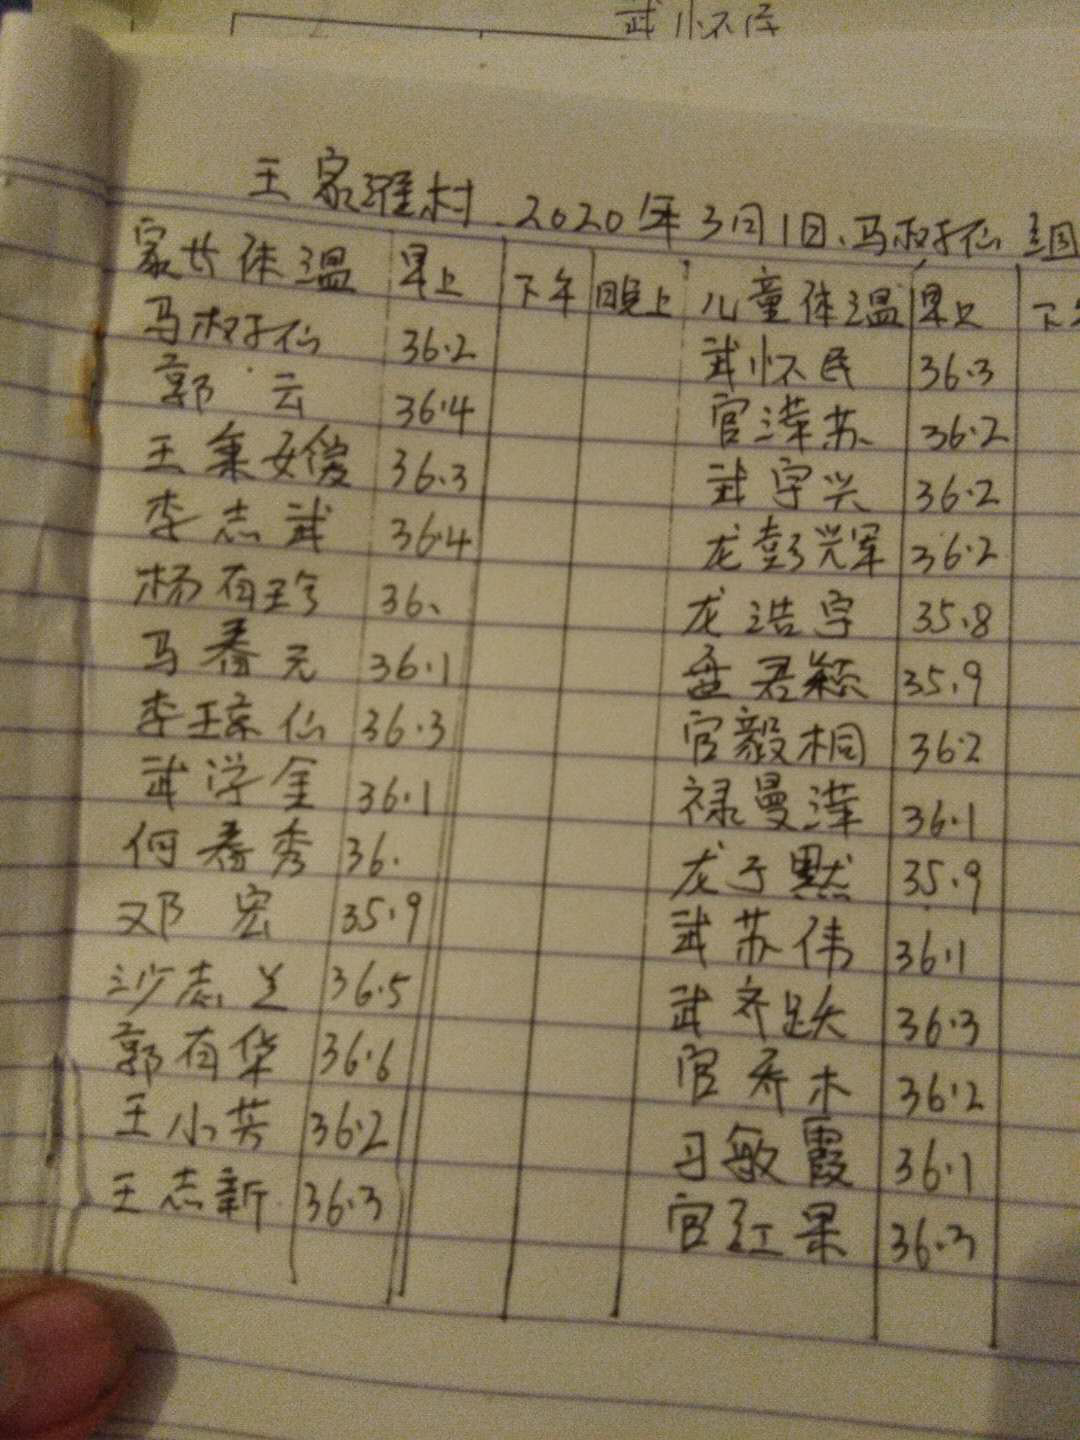 武怀民
王家滩村.2020年3月1日、马树仙 组
家长体温 早上 下午 晚上 儿童体温 早上 下午
马树仙 36.2 武怀民 36.3
郭云 36.4 官泽苏 36.2
王 36.3 武宇兴 36.2
李志武 36.4 龙彭兴军 36.2
杨有珍 36、 龙浩宇 35.8
马春元 36.1 君颖 35.9
李琼仙 36.3 官毅桐 36.2
武学金 36.1 禄曼泽 36.1
何春秀 36. 龙子默 35.9
邓宏 35.9 武苏伟 36.1
沙志兰 36.5 武齐跃 36.3
郭有华 36.6 官乔木 36.2
王小芳 36.2 习敏霞 36.1
王志新 36.3 官红果 36.3